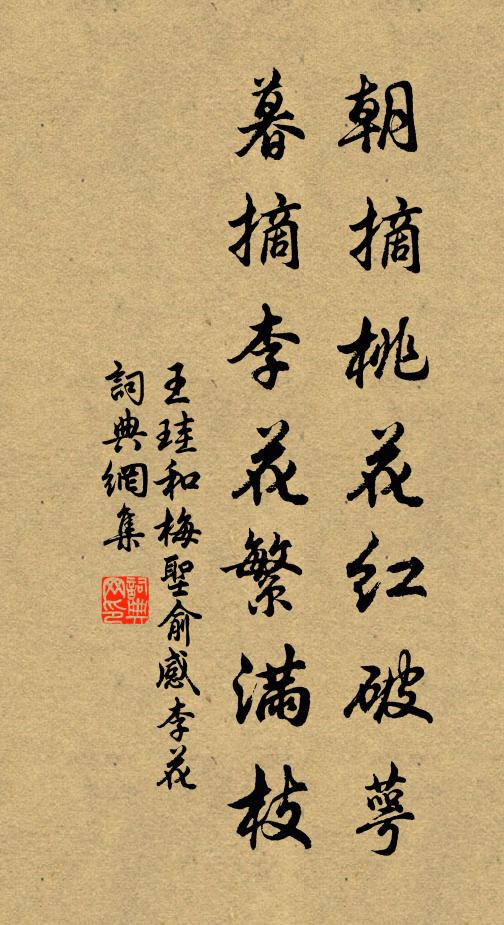 朝摘桃花红破萼
暮摘李花繁满枝
王珪和梅聖俞感李花
詞典網集
詞典網印